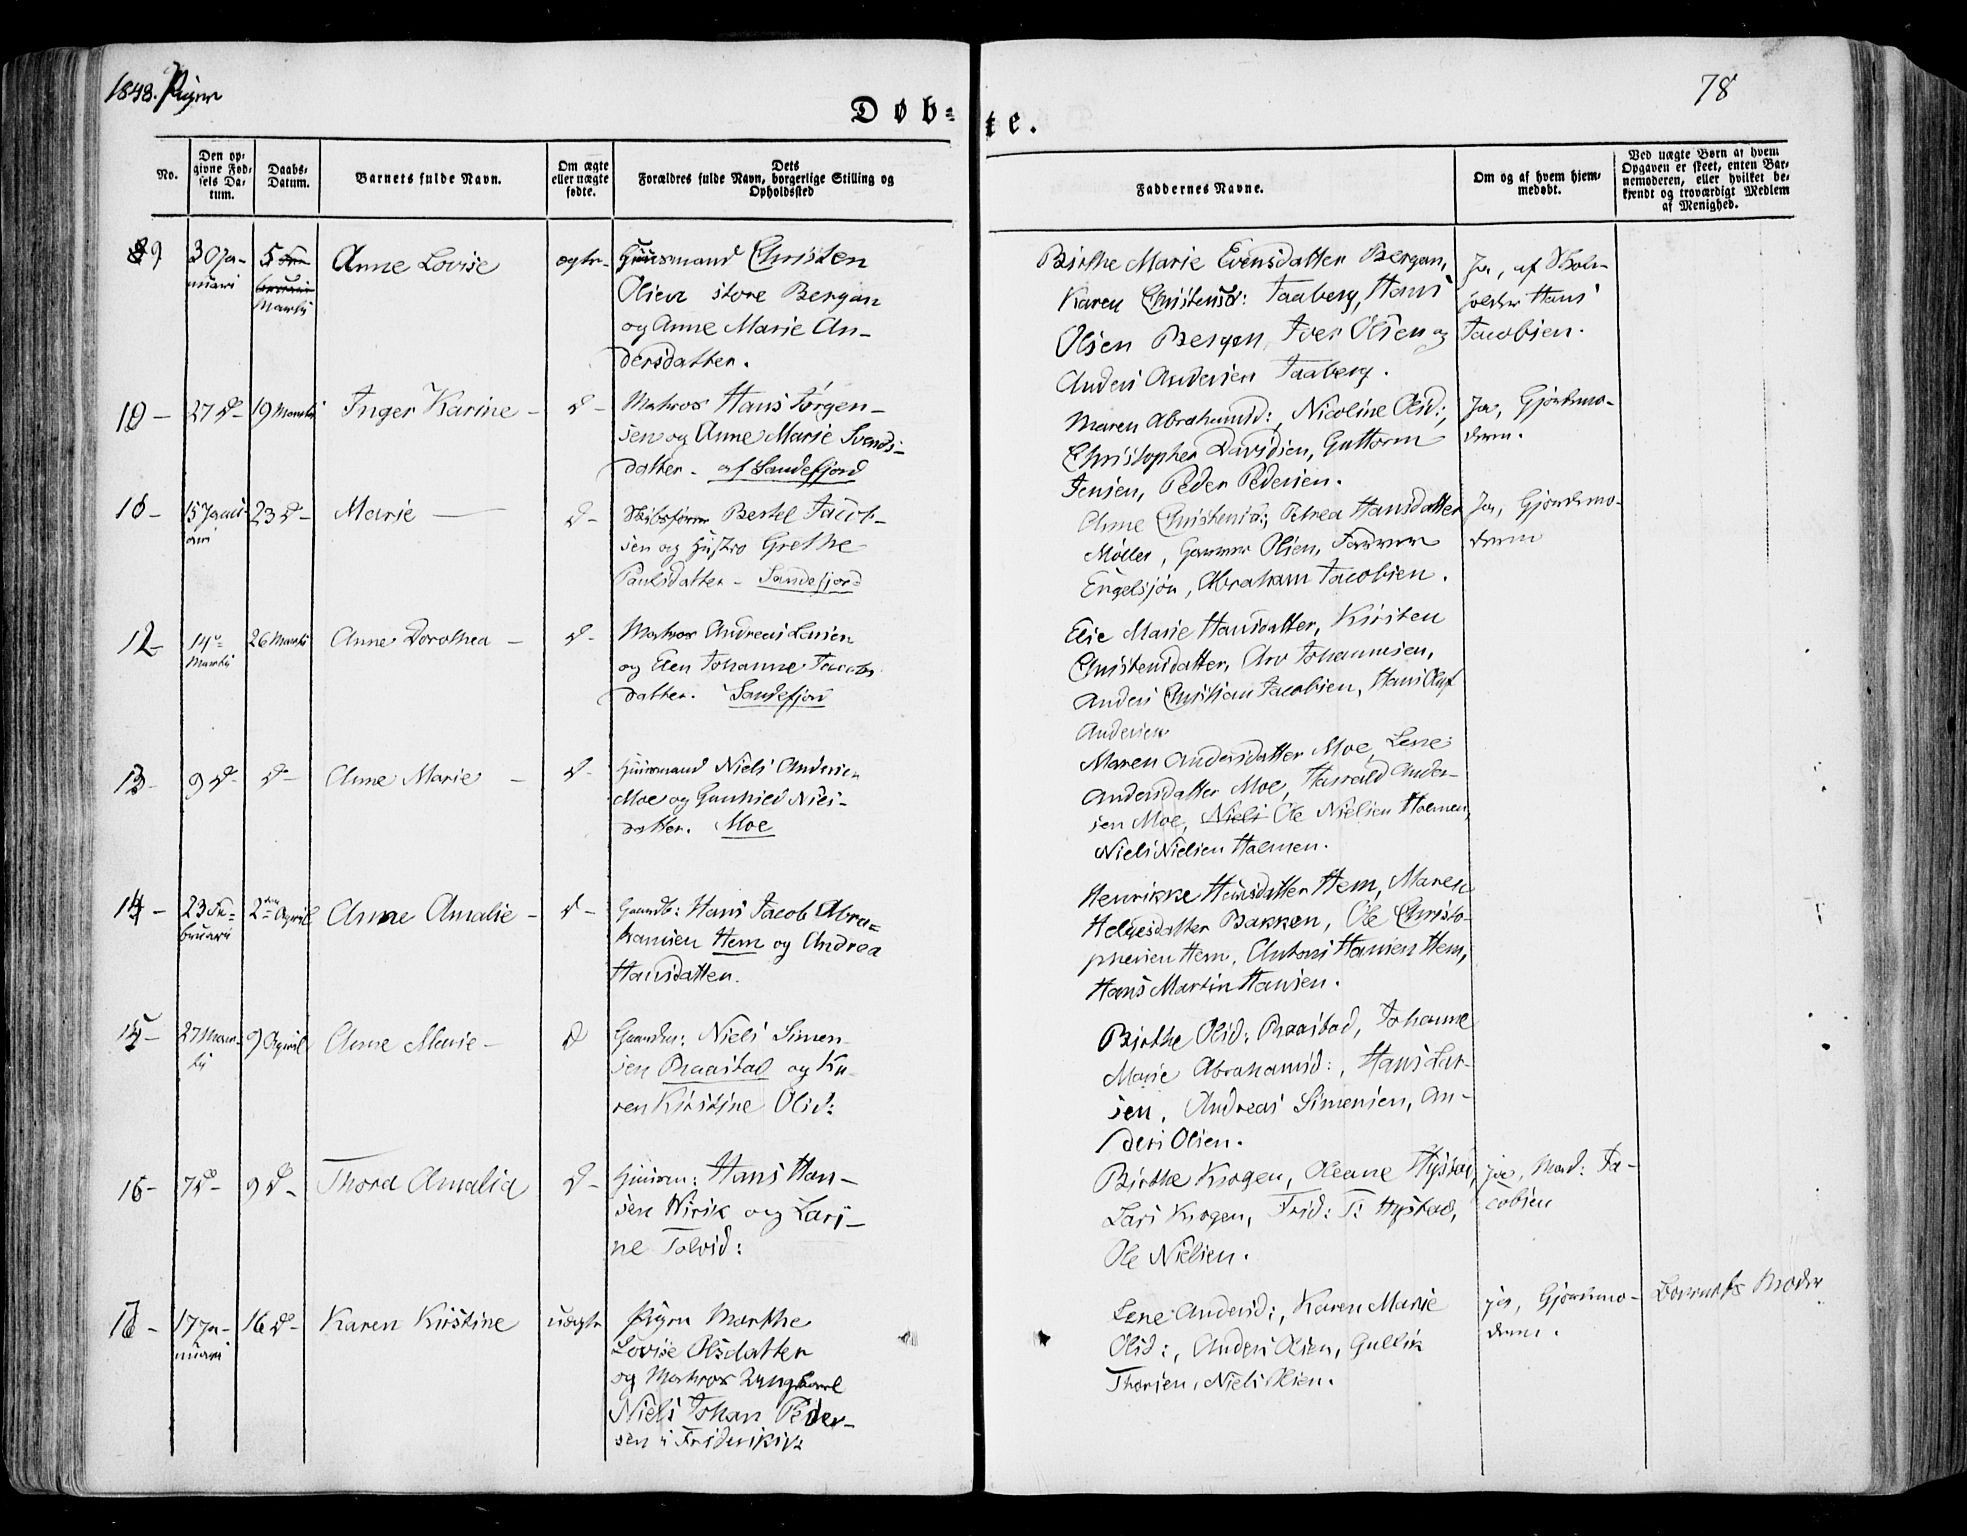 1848. Piger
78
Døb=
te.
No.
Den op-
givne Fød-
sels Da-
tum.
Daabs-
Datum.
Barnets fulde Navn.
Om ægte
eller uægte
fødte.
Dets
Forældres fulde Navn, borgerlige Stilling og
Opholdssted
Faddernes Navne.
Om og af hvem hjem-
medøbt.
Ved uægte Børn af hvem
Opgaven er skeet, enten Bar-
nemoderen, eller hvilket be-
kjendt og troværdigt Medlem
af Menighed.
9
30 Ja-
nuari
5 Fe-
bruari
Martij
Anne Lovise
ægte-
Huusmand Christen
Olsen store Bergan
og Anne Marie An-
dersdatter.
Birthe Marie Evensdatter Bergan,
Karen Christensd: Taaberg, Hans
Olsen Bergan, Iver Olsen og
Anders Andersen Taaberg.
Ja, af Skole-
holder Hans
Jacobsen.
10 -
27 D-
19 Martij
Inger Karine -
D -
Matros Hans Jørgen-
sen og Anne Marie Svends-
datter - af Sandefjord
Maren Abrahamsd:, Nicoline Olsd:,
Christopher Davidsen, Guttorm
Jensen, Peder Pedersen.
Ja, Gjordemo-
deren.
15 Janu-
ari
23 D -
Marie
D -
Skibsfører Bertel Jacob-
sen og Hustro Grethe
Paulsdatter - Sandefjord
Anne Christensd:, Petrea Hansdatter
Møller, Gunner Olsen,
Engelsjøn, Abraham Jacobsen.
Ja, Gjordemo-
deren
12 -
14de
Martij
26 Martij
Anne Dorothea -
D -
Matros Andreas Larsen
og Elen Johanne Jacobs
datter. Sandefjord
Elie Marie Hansdatter, Kirsten
Christensdatter, Arv Johannesen,
Anders Christian Jacobsen, Hans Oluf
Andersen
13 -
9 D -
D -
Anne Marie -
D -
Huusmand Niels Andersen
Moe og Gunhild Niels-
datter. Moe
Maren Andersdatter Moe, Lene
Andersdatter Moe, Harald Ander-
sen Moe, Niels Ole Nielsen Holmen,
Niels Nielsen Holmen.
14 -
23 Fe-
bruari
2den April
Anne Amalie -
D -
Gaardb: Hans Jacob Abra-
hamsen Hem og Andrea
Hansdatter.
Henrikke Hansdatter Hem, Maren
Helgesdatter Bakken, Ole Christo-
phersen Hem, Anthoni Hansen Hem,
Hans Martin Hansen.
15 -
27 Mar-
tij
9 April
Anne Marie -
D
Niels Simen-
sen Praastad og Ka-
ren Kirstine Olsd:
Birthe Olsd: Praastad, Johanne
Marie Abrahamsd:, Hans Lar-
sen, Andreas Simensen, An-
ders Olsen.
16 -
7 D -
9 D -
Thora Amalia
D -
Huusm: Hans Han-
sen Wirik og Lari-
ne Tolvsd:
Birthe Krogen, Oleane Hystad,
Lars Krogen, Frid: T: Hystad,
Ole Nielsen.
ja, Mad: Ja-
cobsen
17 Ja-
nuari
16 D -
Karen Kirstine
uægte
Pigen Marthe
Lovise Olsdatter
og Matros Ungkarl
Niels Johan Peder-
sen i Frideriksv
Lene Andersd:, Karen Marie
Olsd:, Anders Olsen, Gullik
Thorsen, Niels Olsen.
ja, Gjordemo-
deren.
Barnets Moder